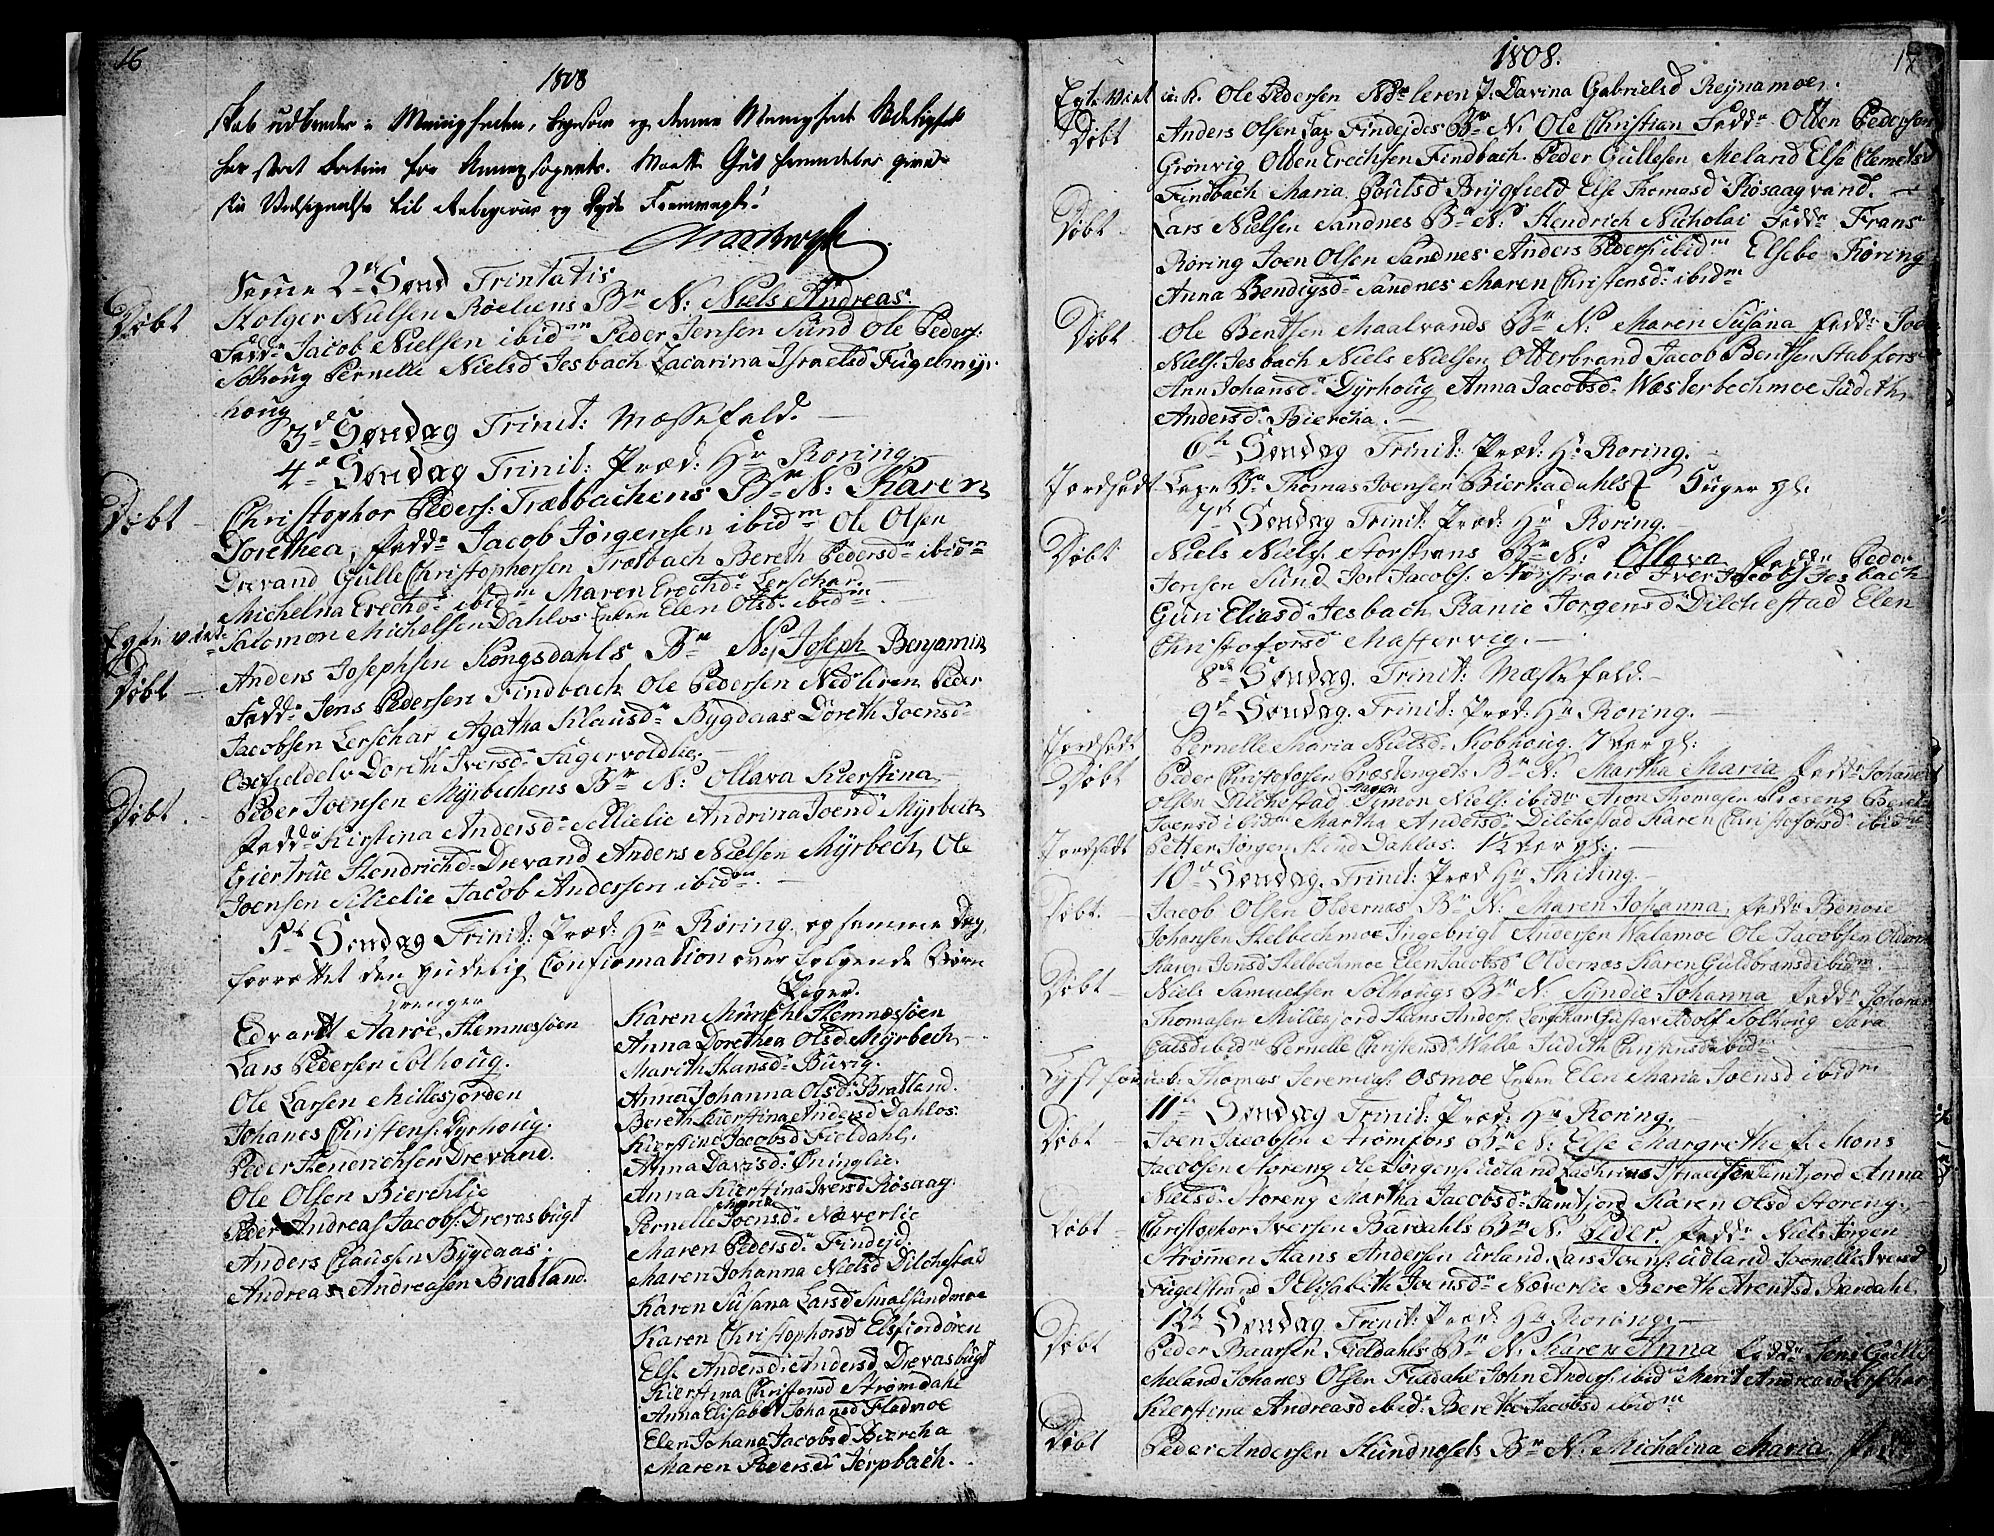 16
1808
skab udbreder i Menigheden, ligesom og denne Menighed
har stort
Velsignelse til og Fremvægt!
Samme 2den Sønd Trinitatis
Døbt
Holger Nielsen Røeliens Bn N: Niels Andreas.
Fadd: Jacob Nielsen ibidm Peder Jensen Sund Ole Peders:
Solhoug Pernelle Nielsd Jesbach Zacarina Israelsd Fugelmyr
houg
3de Søndag Trinit: Messefald.
4de Søndag Trinit: Præd: Hr Røring.
Døbt
Christophor Peders: Trælbachens Bn N: Karen
Dorethea, Fadd: Jacob Jørgensen ibidm Ole Olsen
Drevand Gulle Christophersen Trælbach Bereth Pedersd: ibidm
Michelna Erechsd: ibidm Maren Erechsd: Lerschar.
Egteviet
Salomon Michelsen Dahlos Enken Elen Olsd: ibidm
Døbt
Anders Josephsen Kongsdahls Bn N: Joseph Benjamin
Fadd: Jens Pedersen Findbach Ole Pedersen Nedleren Peder
Jacobsen Lerschar Agatha Klausd: Bygdaas Doreth Joensd:
Doreth Iversd: Fagervoldlie.
Døbt
Peder Joensen Myrbechens Bn N: Ollava Kierstina
Fadd: Kirstina Andersd: Selielie Andrina Joensd Myrbech
Giertrue Hendrichsd: Drevand Anders Nielsen Myrbech, Ole
Joensen Selielie Jacob Andersen ibidm.
5te Søndag Trinit: Præd: Hr Røring, og samme Dag
forrettet den Confirmation over følgende Børn
Drenger
Piger.
Edvardt Aarøe Hemnessøen
Lars Pedersen Solhoug.
Ole Larsen Millesjorden
Johanes Christens: Dyrhoug.
Peder Hendrichsen Drevand.
Ole Olsen Bierchlie
Peder Andreas Jacobs: Drevasbugt
Anders Clausen Bygdaas.
Andreas Andreasen Bratland.
Karen Münch Hemnæssøen
Anna Dorethea Olsd Myrbech
Marith Hansd: Buvig.
Anna Johanna Olsd: Bratland.
Bereth Kiertina Andersd Dahlos
Kiertine Jacobsd Fieldahl.
Anna Davisd: Øninglie.
Anna Kiertina Iversd Røsaag
Pernelle Maria Joensd: Næverlie
Maren Pedersd: Findejd.
Maren Johanna Nielsd Dilchestad
Karen Susana Larsd Smalsundmoe
Karen Christophersd Elsfiordøren
Else Andersd: Andersd Drevasbugt
Kiertina Christensd Strømdahl
Anna Elisabet Johansd Fladmoe
Elen Johana Jacobsd Biercha
Maren Pedersd: Jerpbach.
1808.
17
Egteviet u. K. Ole Pedersen Nedleren P. Davina Gabrielsd Reynamoe.
Døbt
Anders Olsen Findejdes Bn N: Ole Christian Fadd: Olten Pedersen
Grønvig Olten Erechsen Findbach. Peder Gullesen Meland Else Clemetsd
Findbach Maria Poulsd Brygfield Else Thomasd Røsaagvand.
Døbt
Lars Nielsen Sandnes Bn N: Hendrich Nicholai Fadd: Frans
Røring Joen Olsen Sandnes Anders Peders: ibidm Elsebe Røring
Anna Bendigsd: Sandnes Maren Christensd: ibidm
Døbt
Ole Bentsen Maalvands Bn N: Maren Susana Fadd: Joe
Niels: Jesbach Niels Nielsen Otterbrand Jacob Bentsen Stabfors
Ann Johansd: Dyrhoug Anna Jacobsd: Wæsterbechmoe Judeth
Andersd: Biercha.
6te Søndag Trinit: Præd: Hr Røring.
Jordsadt
Thomas Joensen Bierkadahls 5 uger gl:
7de Søndag Trinit: Præd: Hr Røring.
Døbt
Niels Niels: Storstrans Bn N: Ollava Fadd: Peder
Jensen Sund Jon Jacobs: Storstrand Iver Jacobs Jesbach
Gun Eliasd Jesbach Ranie Jørgensd Dilchestad Elen
Christofersd Mastervig.
8de Søndag. Trinit: Messefald.
9de Søndag. Trinit: Præd: Hr Røring.
Jordsadt
Pernelle Maria Nielsd: Skobhoug. 7 aar gl:
Døbt
Peder Christofersen Præstengets Bn N: Martha Maria Fadd: Johanes
Olsen Dilchestad Simon Niels: ibidm Aron Thomasen Præseng Beret
Joensd ibidm Martha Andersd: Dilchestad Karen Christofersd: ibidm
Jordsadt
Petter Jørgen Dahlos: aar gl:
10de Søndag. Trinit: Præd Hr Hiting.
Døbt.
Jacob Olsen Oldernæs Bn N: Maren Johanna, Fadd: Benoie
Johansen Stelbechmoe Ingebrigt Andersen Walamoe Ole Jacobsen Oldern
Karen Jensd Stelbechmoe Elen Jacobsd Oldernæs Karen Guldbransd ibidm
Døbt
Niels Samuelsen Solhougs Bn N. Syndie Johanna Fadd: Johanes
Thomasen Millesjord Hans Anders: Lerschar Gustav Adolf Solhoug Sara
ibidm Pernelle Christensd: Judith Christensd ibidm
Thomas Jeremias: Osmoe Enken Elen Maria Joensd ibidm
11te Søndag Trinit: Præd: Hr Røring.
Døbt
Joen Jacobsen Strømfors Bn N: Else Margrethe f. Mons
Jacobsen Storeng Ole Jørgens: Udland Zachrias Israelsen Famfjord Anna
Nielsd: Storeng Martha Jacobsd: Famfjord Karen Olsd Storeng.
Døbt
Christopher Iversen Bardahls Bn N: Peder. Fadd: Niels Jørgen
Strømen Hans Andersen Urland Lars Joens: Udland Joenelle Iversd
Fugelstrand Elisabeth Joensd: Næverlie Bereth Arentsd Bardahl.
12te Søndag Trinit: Præd: Hr Røring.
Døbt
Peder Baarsen Fieldahls Bn N: Karen Anna Fadd: Jens Gulles
Meland Johanes Olsen Fieldahl John Anders: ibid: Marit Andreasd Lerschar
Kiertina Andreasd ibid: Berethe Jacobsd ibidm
Døbt
Peder Andersen Hundnesets Bn N: Michelina Maria, Fadd: